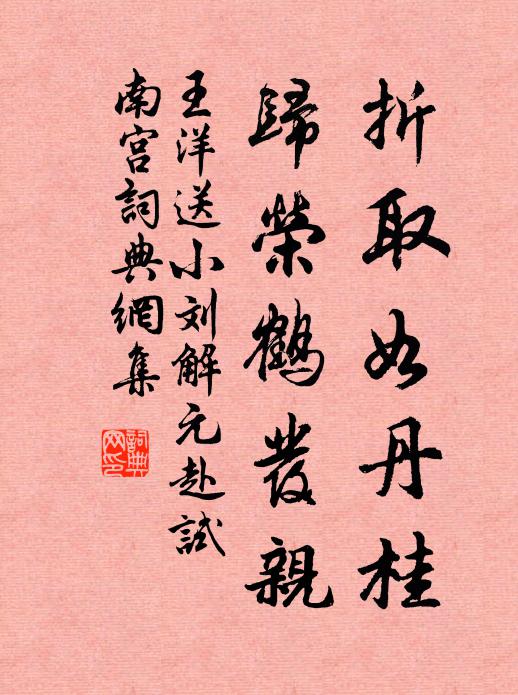 折取如丹桂
歸榮鶴發親
王洋送小刘解元赴試
南宫詞典網集
詞典网印